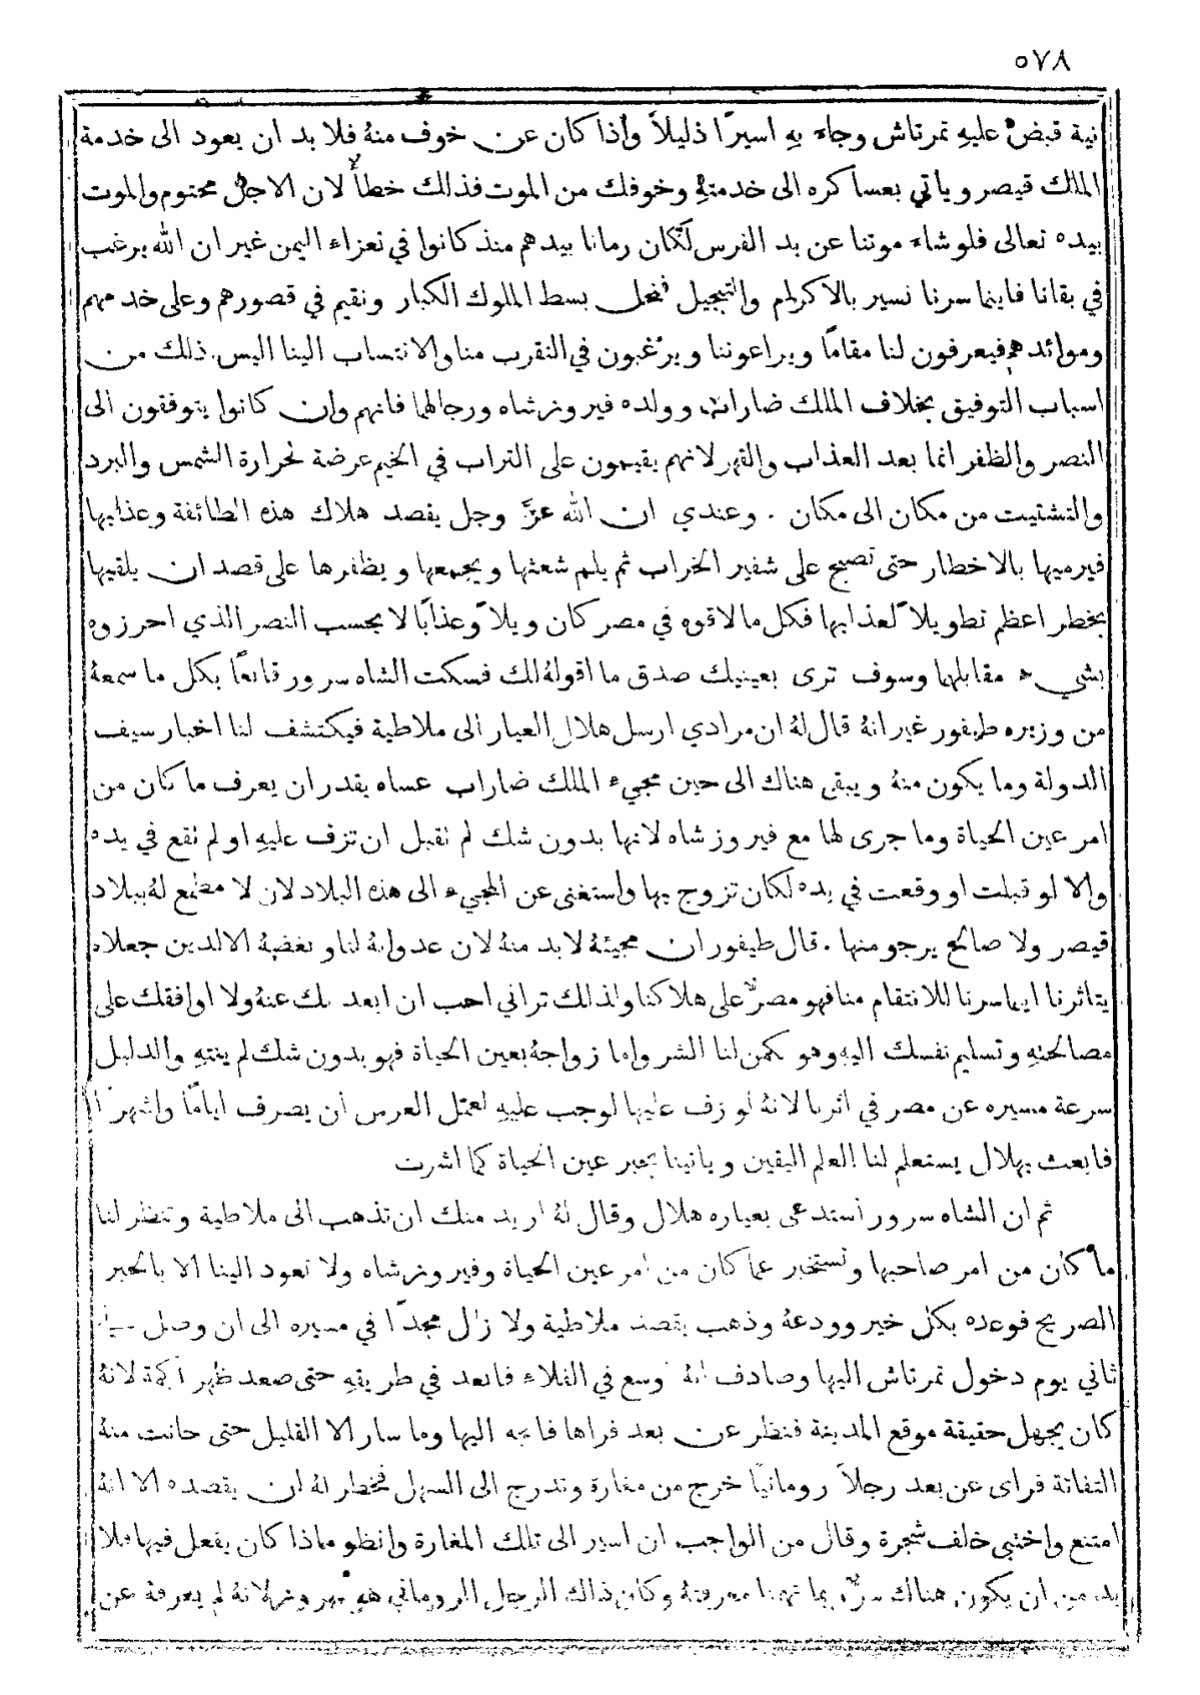 ٥٧٨
نية قبض عليهِ تمرتاش وجاء بهِ اسيرًا ذليلاً واذا كان عن خوف منهُ فلا بد ان يعود الى خدمة
الملك قيصر وياتي بعساكره الى خدمتهِ وخوفك من الموت فذلك خطأٌ لان الاجل محتوم والموت
بيده تعالى فلو شاء موتنا عن يد الفرس لكان رمانا بيدهم منذ كانوا في تعزاء اليمن غير ان الله يرغب
في بقانا فاينما سرنا نسير بالاكرام والتبجيل فنحل بسط الملوك الكبار ونقيم في قصورهم وعلى خدمهم
وموائدهم فيعرفون لنا مقامًا ويراعوننا ويرغبون في التقرب منا والانتساب الينا اليس ذلك من
اسباب التوفيق بخلاف الملك ضاراب وولده فيروزشاه ورجالهما فانهم وان كانوا يتوفقون الى
النصر والظفر انما بعد العذاب والقهر لانهم يقيمون على التراب في الخيم عرضة لحرارة الشمس والبرد
والتشتيت من مكان الى مكان . وعندي ان الله عزَّ وجل يقصد هلاك هذه الطائفة وعذابها
فيرميها بالاخطار حتى تصبح على شفير الخراب ثم يلم شعثها ويجمعها ويظفرها على قصد ان يلقيها
بخطر اعظم تطويلاً لعذابها فكل ما لاقوه في مصر كان ويلاً وعذابًا لا يحسب النصر الذي احرزوه
بشيء مقابلها وسوف ترى بعينيك صدق ما اقولهُ لك فسكت الشاه سرور قانعًا بكل ما سمعهُ
من وزيره طيفور غير انهُ قال لهُ ان مرادي ارسل هلال العيار الى ملاطية فيكتشف لنا اخبار سيف
الدولة وما يكون منهُ ويبقى هناك الى حين مجيء الملك ضاراب عساه يقدر ان يعرف ما كان من
امر عين الحياة وما جرى لها مع فيروزشاه لانها بدون شك لم تقبل ان تزف عليهِ او لم تقع في يده
والا لو قبلت او وقعت في يده لكان تزوج بها واستغنى عن المجيء الى هذه البلاد لان لا مطمع لهُ ببلاد
قيصر ولا صالح يرجو منها . قال طيفور ان مجيئهُ لا بد منهُ لان عدوانهُ لنا وبغضهُ الالدين جعلاه
يتاثرنا اينما سرنا للانتقام منا فهو مصرٌ على هلاكنا ولذلك تراني احب ان ابعد بك عنهُ ولا اوافقك على
مصالحتهِ وتسليم نفسك اليهِ وهو يكمن لنا الشر واما زواجهُ بعين الحياة فهو بدون شك لم ينتهِ والدليل
سرعة مسيره عن مصر في اثرنا لانهُ لو زف عليها لوجب عليهِ لعمل العرس ان يصرف ايامًا واشهرًا
فابعث بهلال يستعلم لنا العلم اليقين وياتينا بخبر عين الحياة كما اشرت
ثم ان الشاه سرور استدعى بعياره هلال وقال لهُ اريد منك ان تذهب الى ملاطية وتنظر لنا
ما كان من امر صاحبها وتستخبر عما كان من امر عين الحياة وفيروزشاه ولا تعود الينا الا بالخبر
الصريح فوعده بكل خير وودعهُ وذهب يقصد ملاطية ولا زال مجدًا في مسيره الى ان وصل
ثاني يوم دخول تمرتاش اليها وصادف انهُ وسع في الفلاء فابعد في طريقهِ حتى صعد ظهر اكمة لانهُ
كان يجهل حقيقة موقع المدينة فنظر عن بعد فراها فاتجه اليها وما سار الا القليل حتى حانت منهُ
التفاتة فراى عن بعد رجلاً رومانيًا خرج من مغارة وتدرج الى السهل فخطر لهُ ان يقصده الا انهُ
امتنع واختبى خلف شجرة وقال من الواجب ان اسير الى تلك المغارة وانظر ماذا كان يفعل فيها فلا
بد من ان يكون هناك سرٌّ بما تهمنا معرفتهُ وكان ذلك الرجل الروماني هو بهروز لانهُ لم يعرفهُ عن